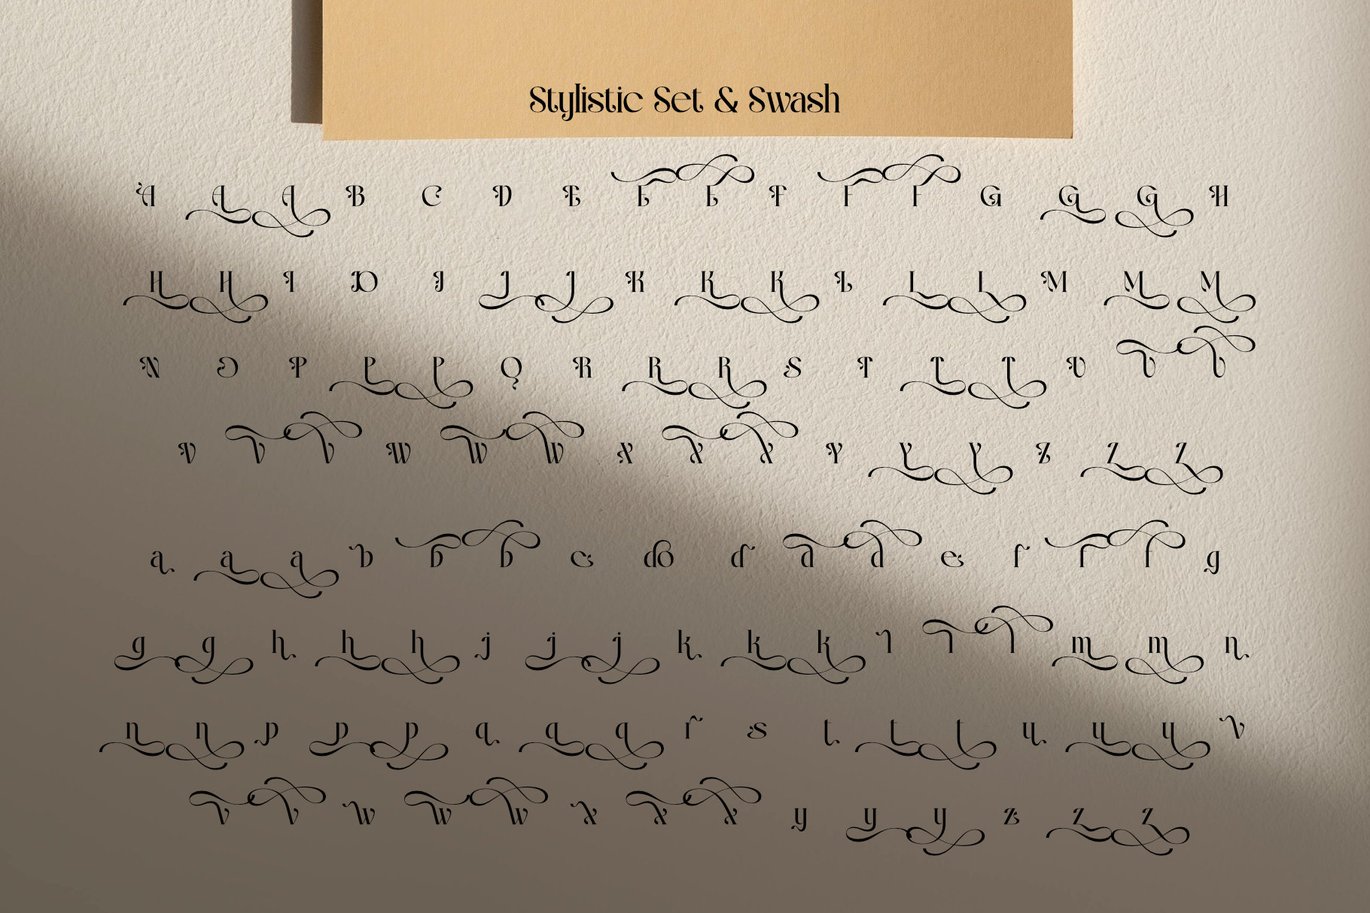 Stylistic Set & Swash
A A A B C D E E E F F F G G G H
H H I D J J J K K K L L L M M M
N O P P P Q R R R S T T T U U U
V V V W W W X X X Y Y Y Z Z Z
a a a b b b c do d d d e f f f g
g g h h h j j j k k k l l l m m n
n n p p p q q q r s t t t u u u v
v v w w w x x x y y y z z z